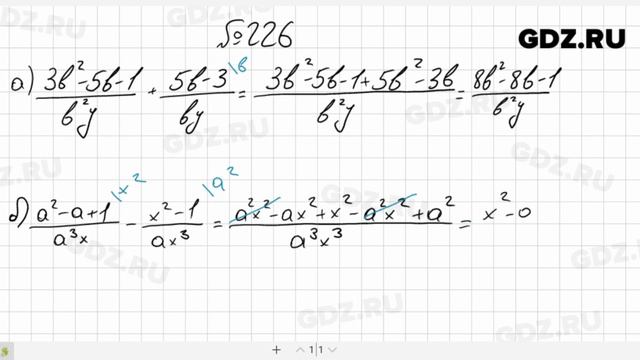 №226
GDZ.RU
а) (3b²-5b-1)/(b²y) + (5b-3)/(by) |b = (3b²-5b-1+5b²-3b)/(b²y) = (8b²-8b-1)/(b²y)
б) (a²-a+1)/(a³x) |x² - (x²-1)/(ax³) |a² = (a²x²-ax²+x²-a²x²+a²)/(a³x³) = x²-a
1|1